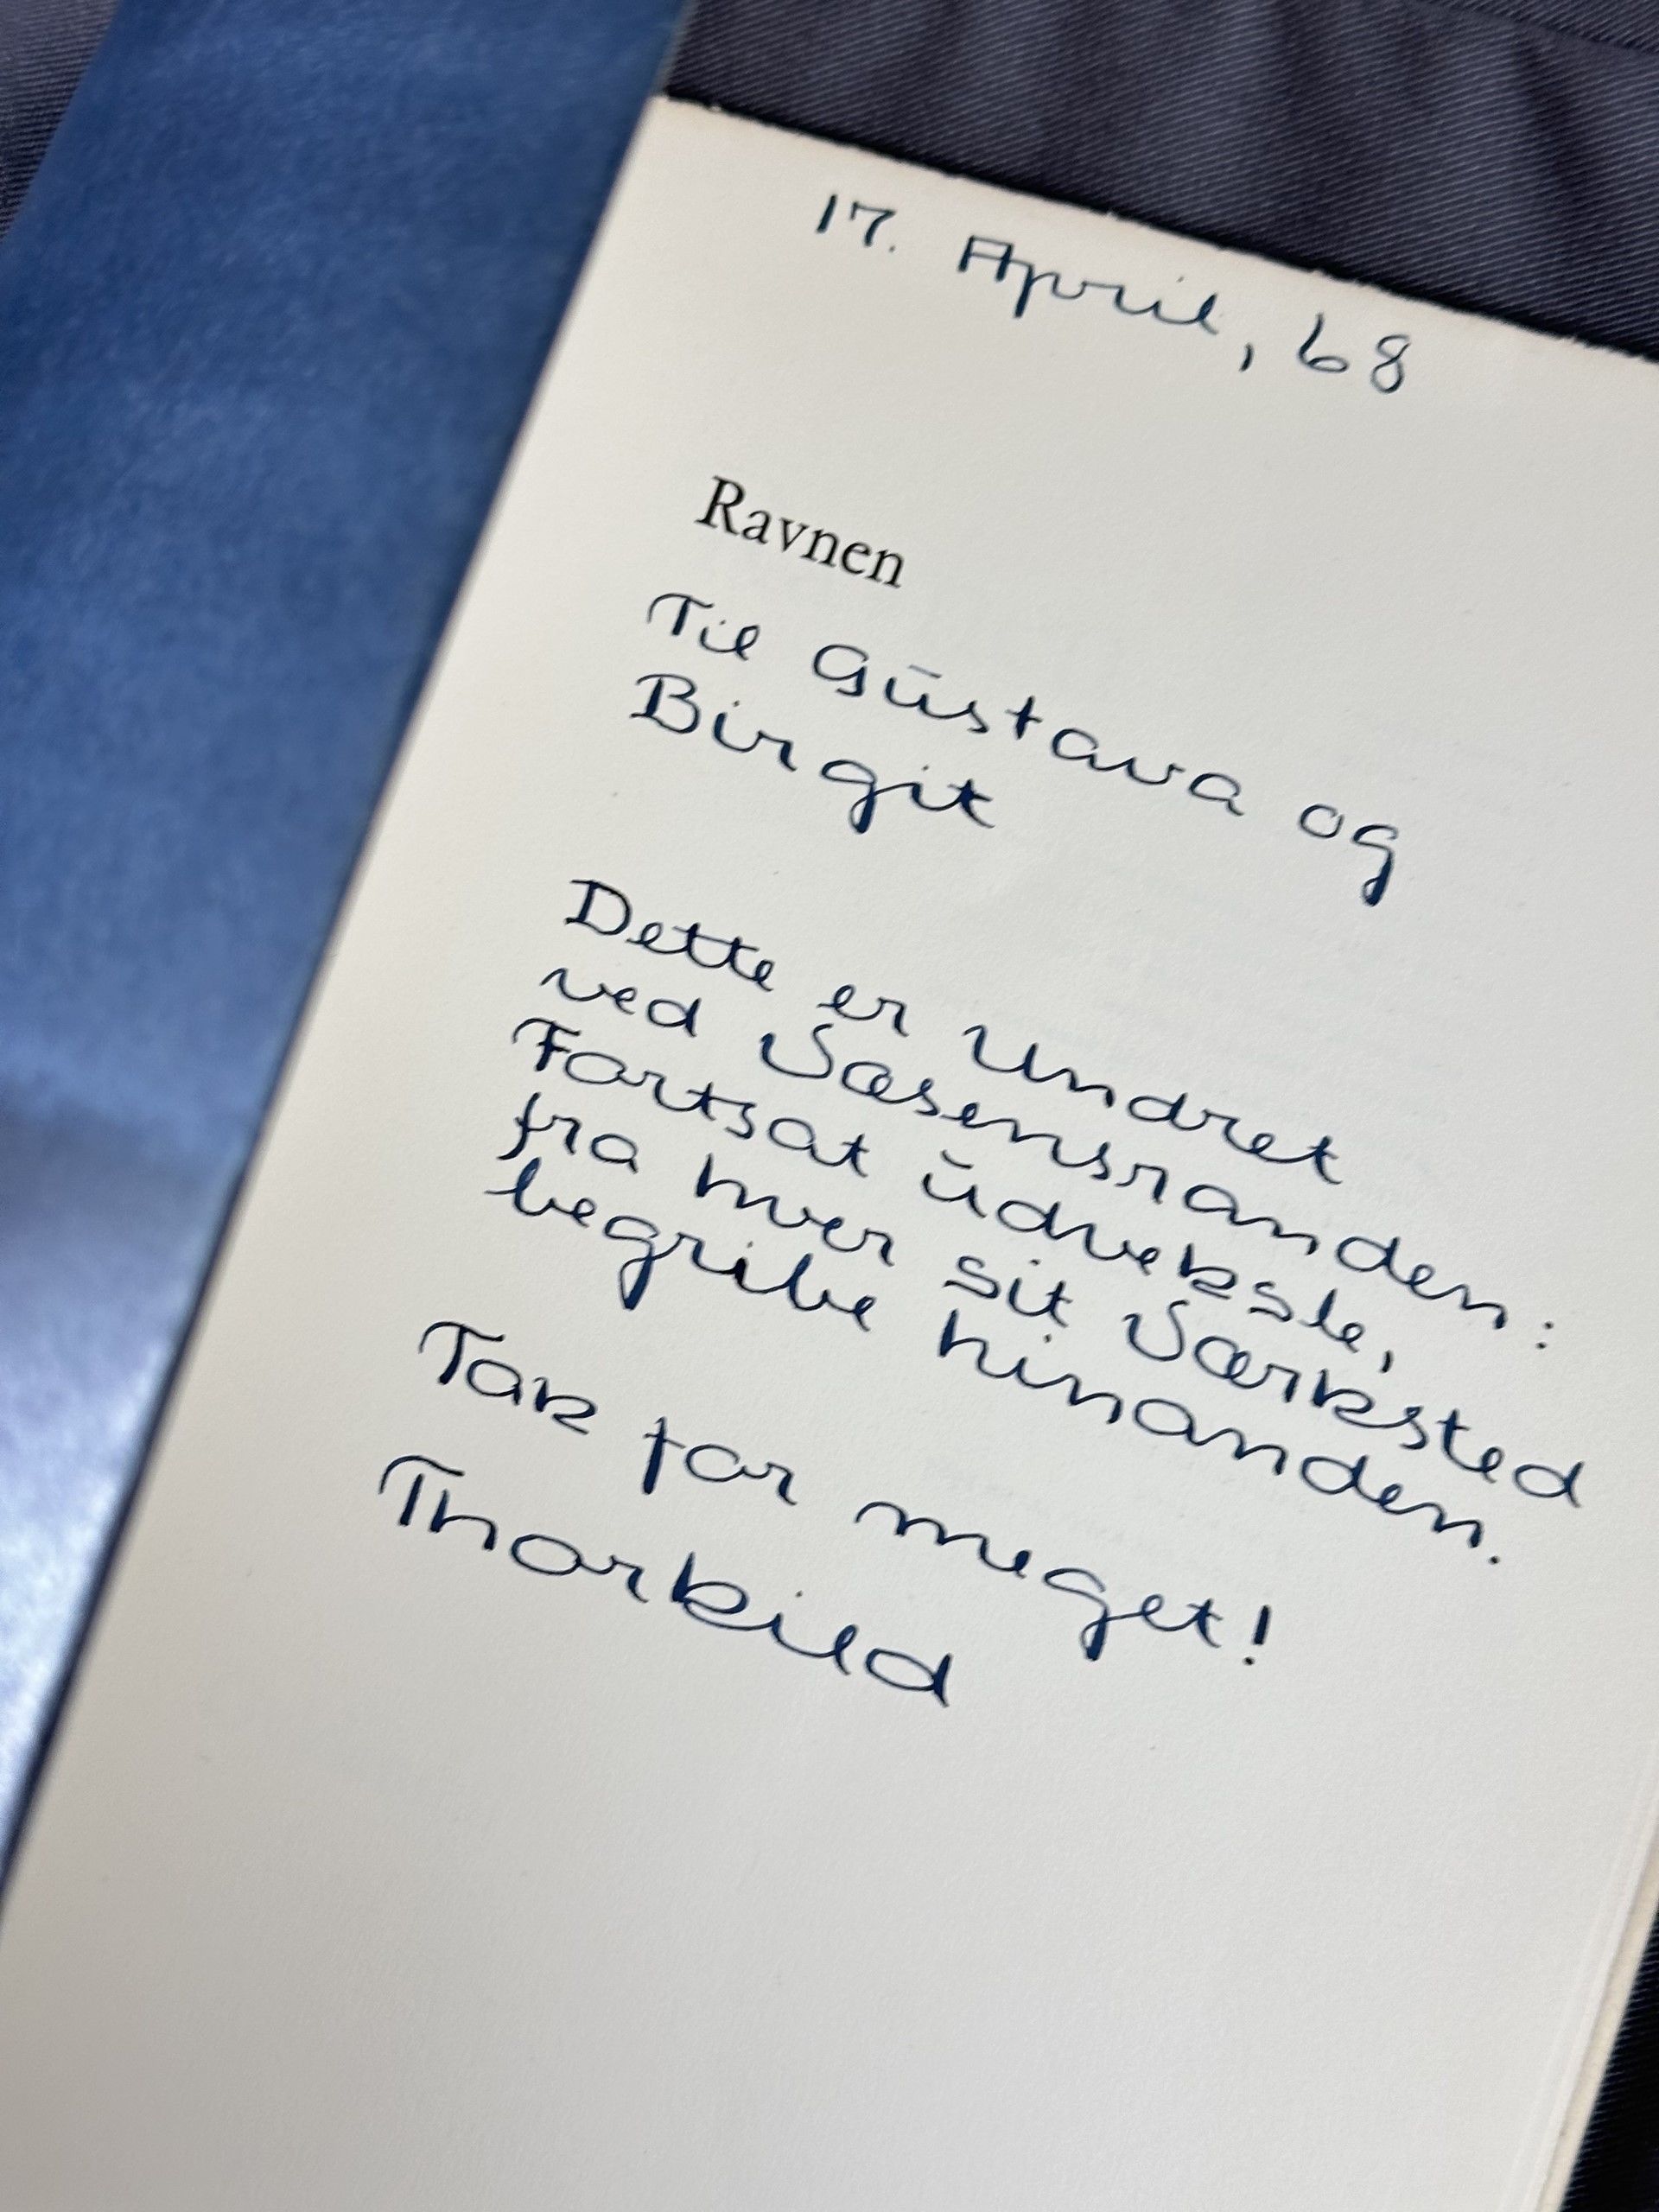 17. April, 68
Ravnen
Til Gustava og
Birgit
Dette er Undret
ved Væsensranden:
Fortsat udveksle,
fra hver sit Værksted
begribe hinanden.
Tak for meget!
Thorkild